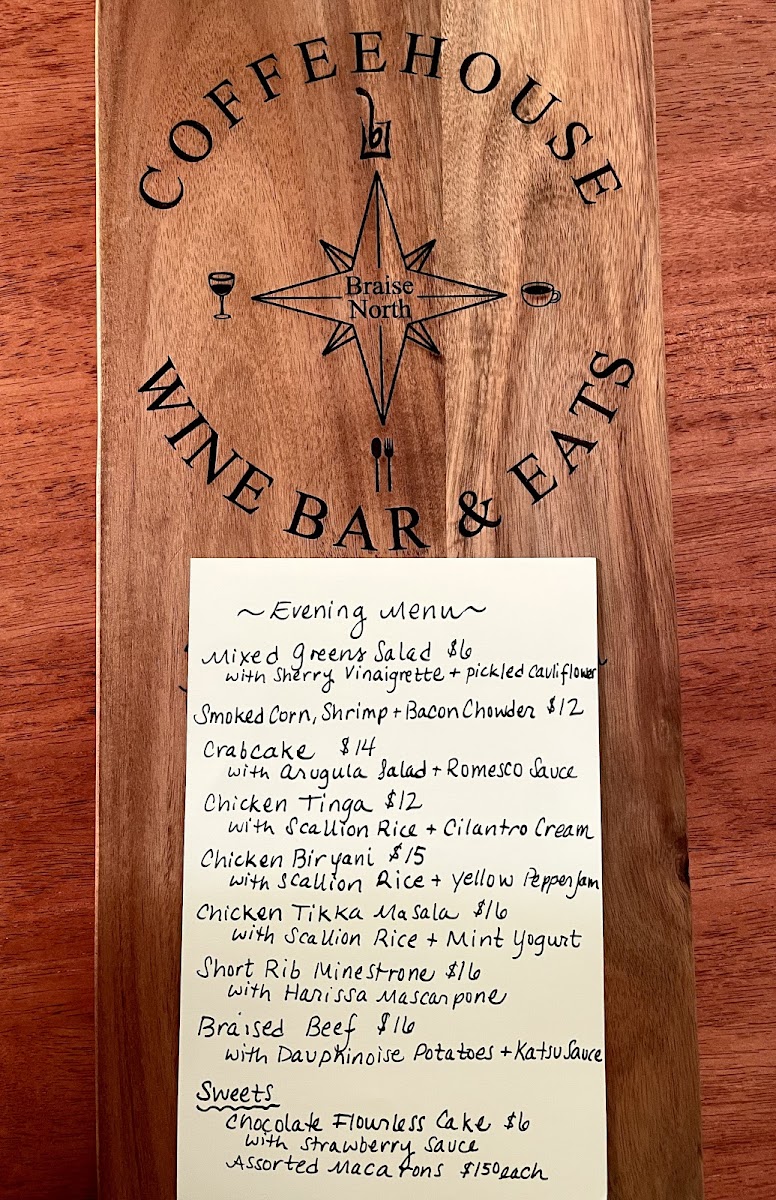 COFFEEHOUSE
b
Braise
North
WINE BAR & EATS
~Evening Menu~
Mixed Greens Salad $6
with Sherry Vinaigrette + pickled Cauliflower
Smoked Corn, Shrimp + Bacon Chowder $12
Crabcake $14
with Arugula Salad + Romesco Sauce
Chicken Tinga $12
with Scallion Rice + Cilantro Cream
Chicken Biryani $15
with Scallion Rice + Yellow Pepper Jam
Chicken Tikka Masala $16
with Scallion Rice + Mint Yogurt
Short Rib Minestrone $16
with Harissa Mascarpone
Braised Beef $16
with Dauphinoise Potatoes + Katsu Sauce
Sweets
Chocolate Flourless Cake $6
with Strawberry Sauce
Assorted Macarons $150 each